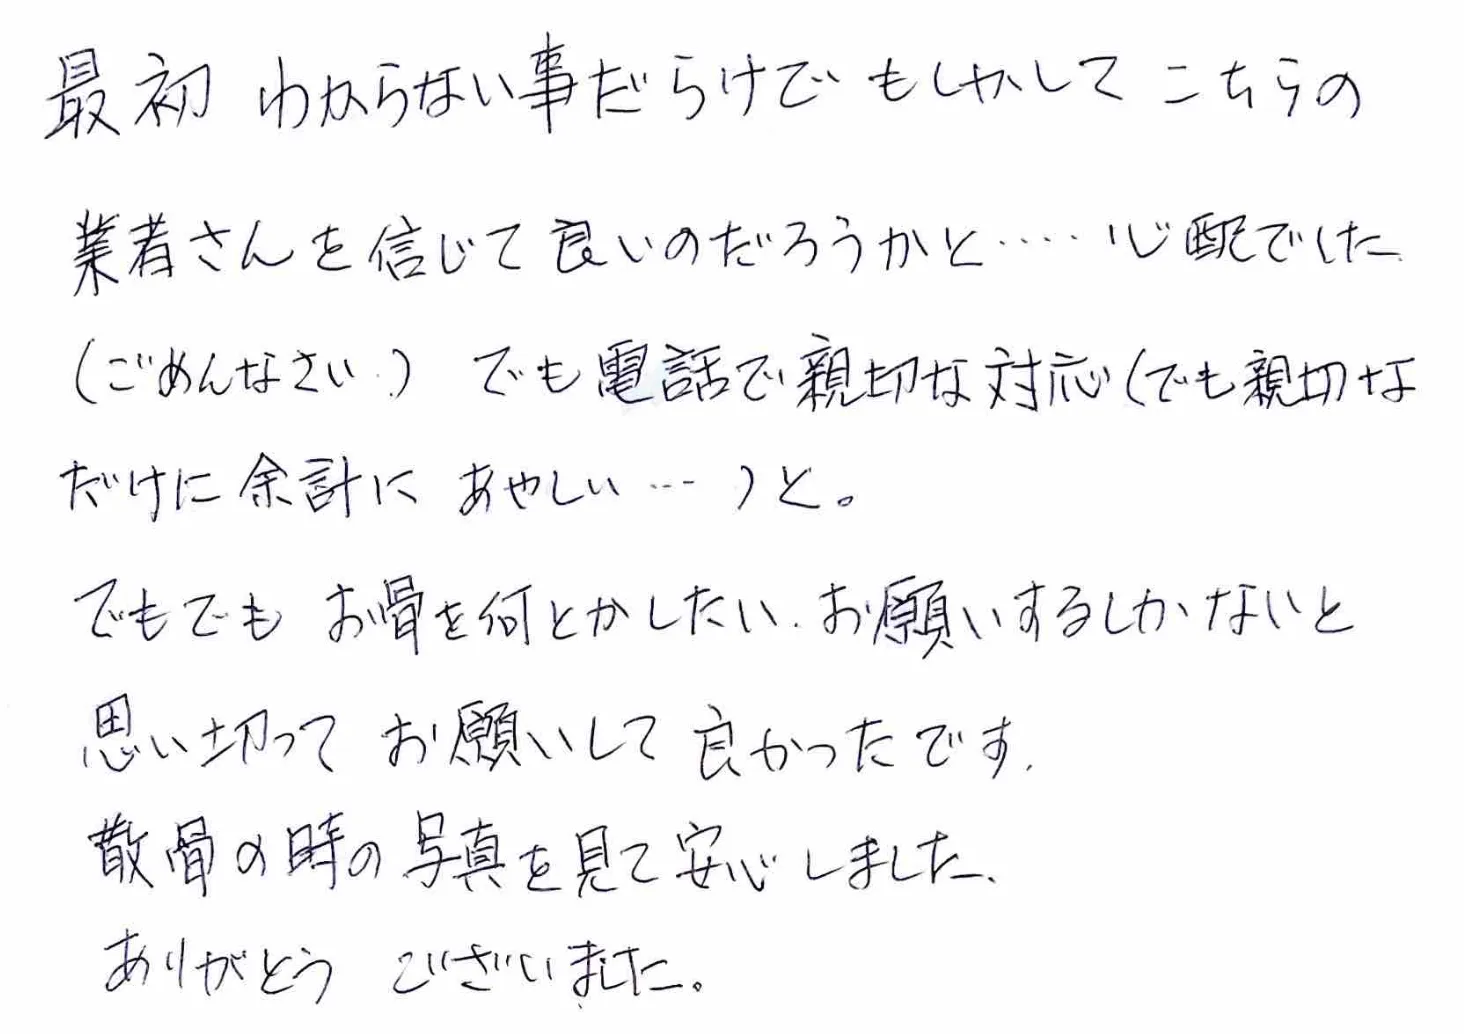 最初 わからない事だらけで もしかして こちらの
業者さんを信じて良いのだろうかと・・・・・心配でした.
(ごめんなさい.) でも電話で親切な対応(でも親切な
だけに余計に あやしい…)と。
でもでも お骨を何とかしたい.お願いするしかないと
思い切って お願いして良かったです.
散骨の時の写真を見て安心しました.
ありがとう ございました。